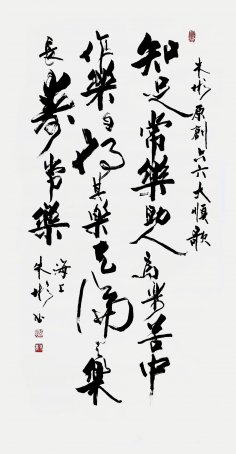 朱彬原創六六大順歌
知足常樂助人為樂苦中
作樂自得其樂天倫之樂
長壽常樂
海上
朱彬書